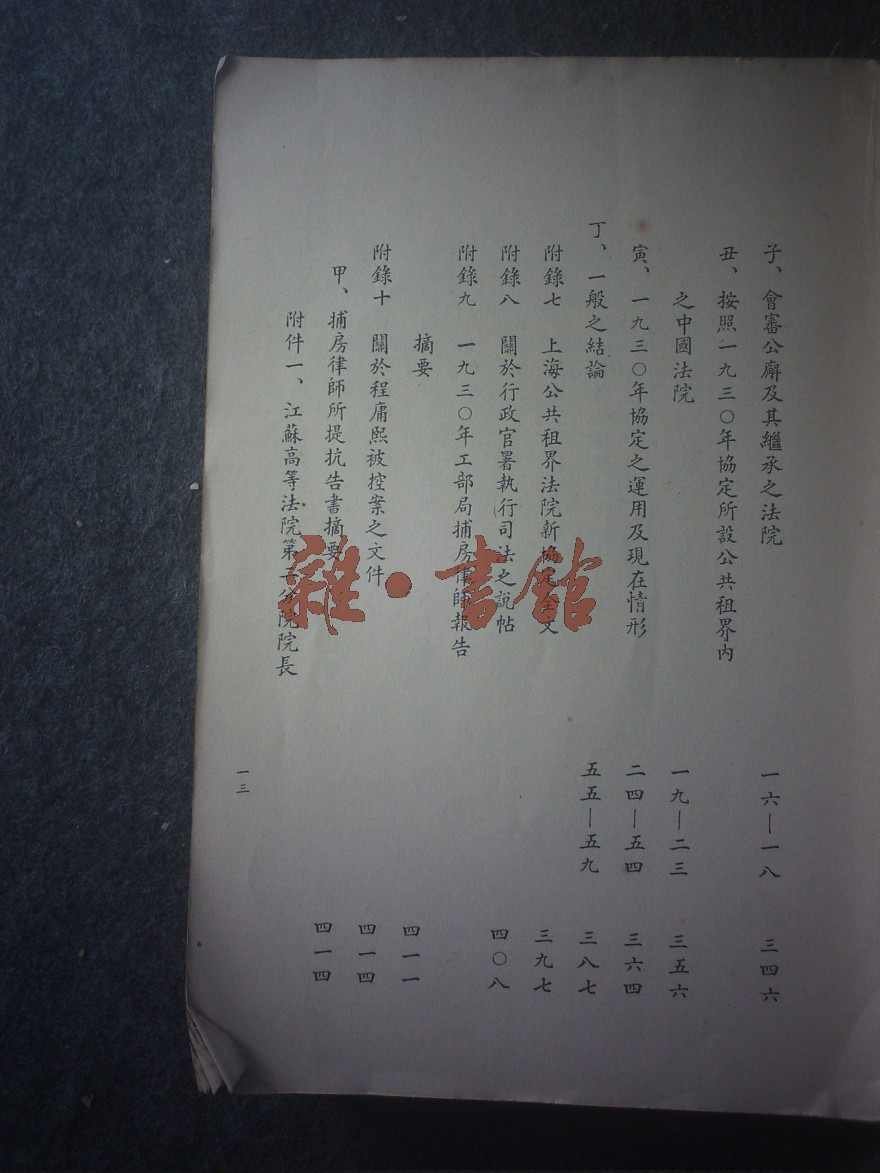 子、會審公廨及其繼承之法院 一六—一八 三四六
丑、按照一九三〇年協定所設公共租界內
之中國法院 一九—二三 三五六
寅、一九三〇年協定之運用及現在情形 二四—五四 三六四
丁、一般之結論 五五—五九 三八七
附錄七 上海公共租界法院新協定全文 三九七
附錄八 關於行政官署執行司法之說帖 四〇八
附錄九 一九三〇年工部局捕房律師報告
摘要 四一一
附錄十 關於程庸熙被控案之文件 四一四
甲、捕房律師所提抗告書摘要 四一四
附件一、江蘇高等法院第二分院院長
一三
雜·書館